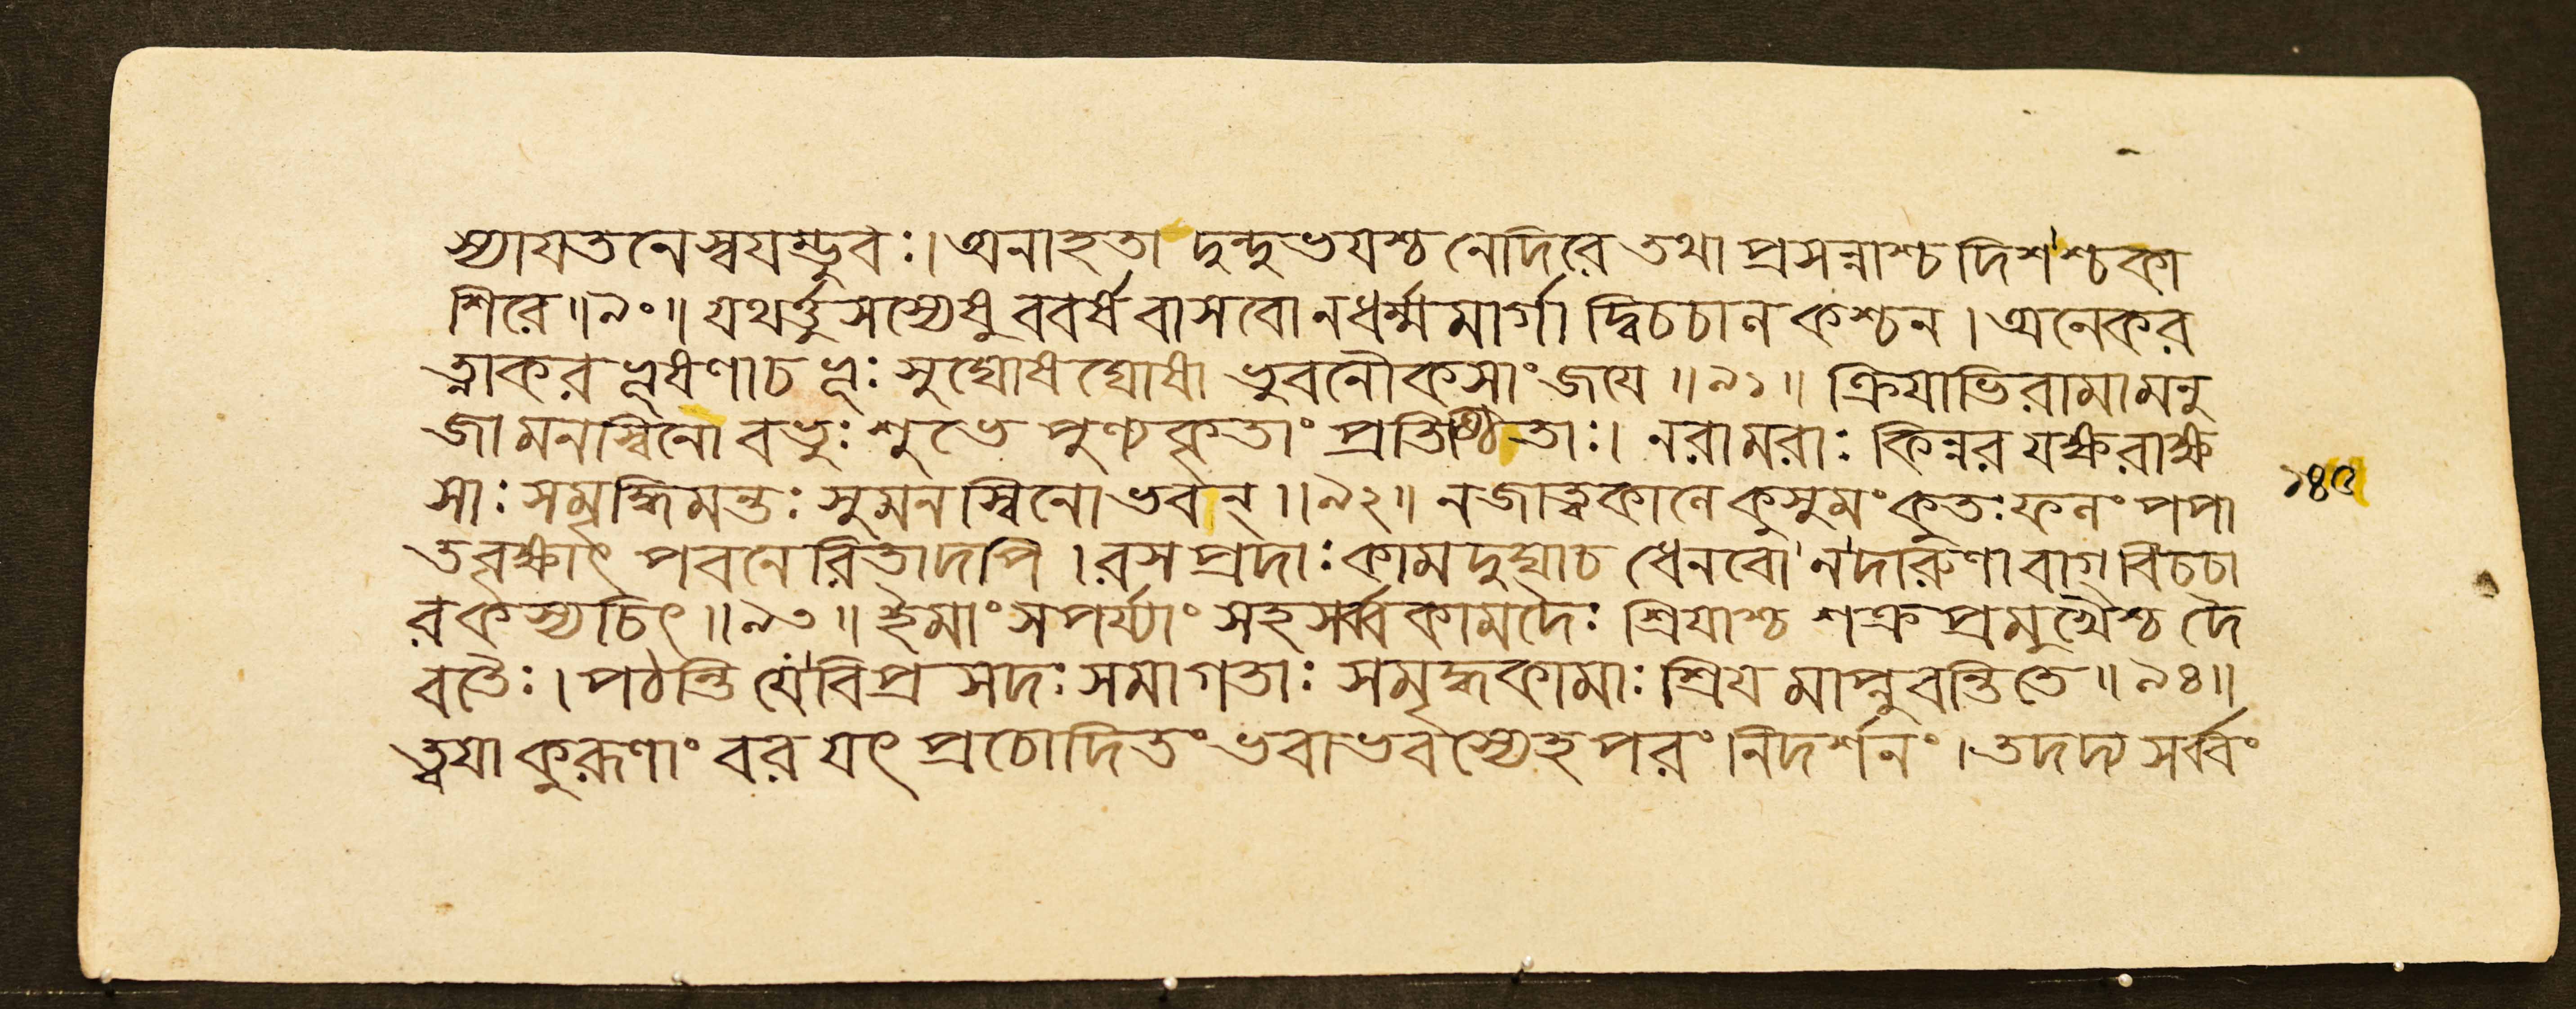 স্যাযতনেস্বযম্ভুবঃ।অনাহতা দুন্দুভযশ্চ নেদিরে তথা প্রসন্নাশ্চ দিশশ্চকা
শিরে॥৯০॥ যথর্ত্তুসস্যেষু ববর্ষ বাসবো নধর্ম্মমার্গা দ্বিচচাল কশ্চন। অনেকর
ত্নাকর ভূষণাচ ভূঃ সুঘোষঘোষা ভুবনৌকসাং জযে॥৯১॥ ক্রিযাভিরামামনু
জামনস্বিনো বভুঃ শুভে পুণ্যকৃতাং প্রতিষ্ঠিতাঃ। নরামরাঃ কিন্নর যক্ষরাক্ষ
সাঃ সমৃদ্ধিমন্তঃ সুমনস্বিনোভবন্॥৯২॥ নজাত্বকালে কুসুমং কুতঃফলং পপা
তবৃক্ষাৎ পবনেরিতাদপি।রস প্রদাঃ কামদুঘাচ ধেনবো নদারুণা বাগ্ বিচচা
রকস্যচিৎ॥৯৩॥ ইমাং সপর্য্যাং সহ সর্ব্বকামদৈঃ শ্রিযাশ্চ শক্র প্রমুখৈশ্চ দৈ
বতৈঃ।পঠন্তি যেবিপ্র সদঃ সমাগতাঃ সমৃদ্ধকামাঃ শ্রিয মাপ্নুবন্তিতে॥৯৪॥
ত্বযা কুরূণাং বর যৎ প্রচোদিতং ভবাভবস্যেহ পরং নিদর্শনং।তদদ্য সর্ব্বং
১৪৫